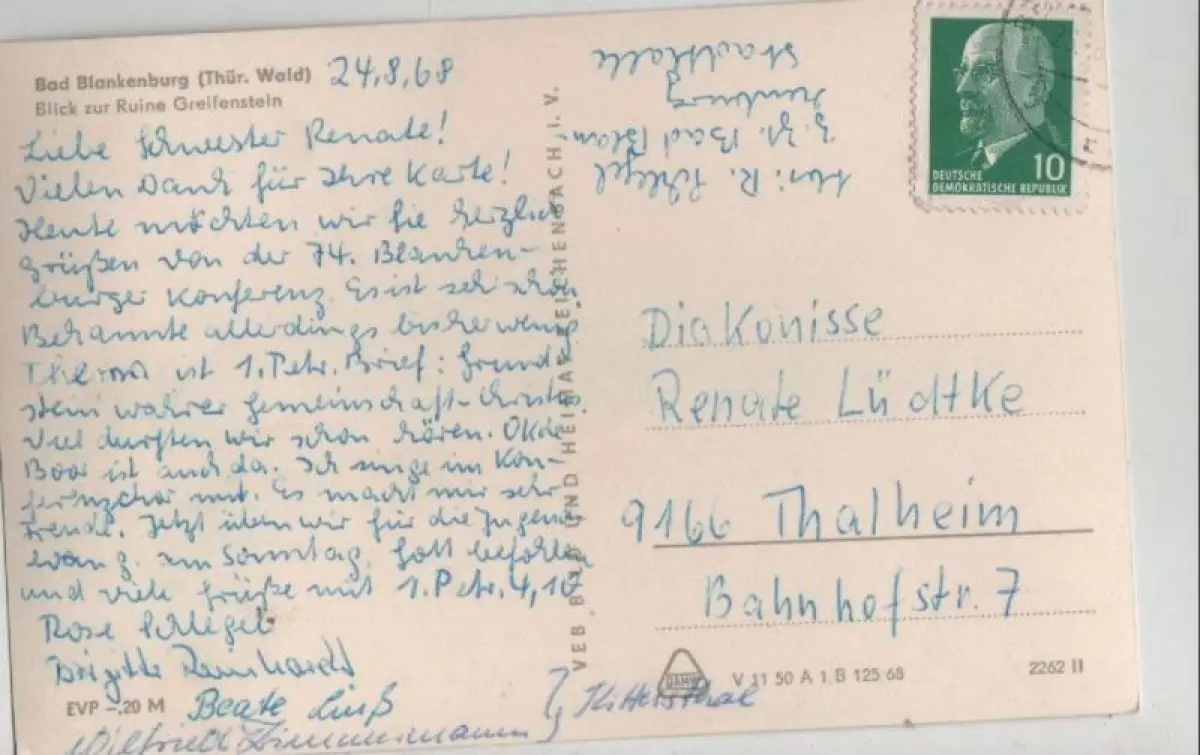 Bad Blankenburg (Thür. Wald)
Blick zur Ruine Greifenstein
24.8.68
Liebe Schwester Renate!
Vielen Dank für Ihre Karte!
Heute möchten wir Sie herzlich
grüßen von der 74. Blanken-
burger Konferenz. Es ist sehr schön.
Bekannte allerdings bisher wenig.
Thema ist 1. Petr. Brief: Grund
stein wahrer Gemeinschaft - Christus
Viel durften wir schon hören.
Boor ist auch da. Ich singe im Kon-
ferenzchor mit. Es macht mir sehr
Freude. Jetzt üben wir für die Jugend
evang. am Sonntag. Gott befohlen
und viele Grüße mit 1. Petr. 4,10
Rose Schlegel
Brigitte Reinhardt
Beate Linß
Wilfried Zimmermann } Kittelsthal
EVP -,20 M
VEB BILD UND HEIMAT REICHENBACH I. V.
Abs.: R. Schlegel
z. Zt. Bad Blan-
kenburg
Stadthalle
DEUTSCHE
DEMOKRATISCHE REPUBLIK
10
Diakonisse
Renate Lüdtke
9166 Thalheim
Bahnhofstr. 7
V 11 50 A 1 B 125 68
2262 II